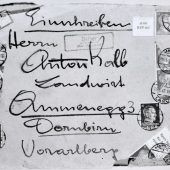 Einschreiben
Herrn
Anton Kolb
Landwirt
Ammenegg 3
Dornbirn
Vorarlberg